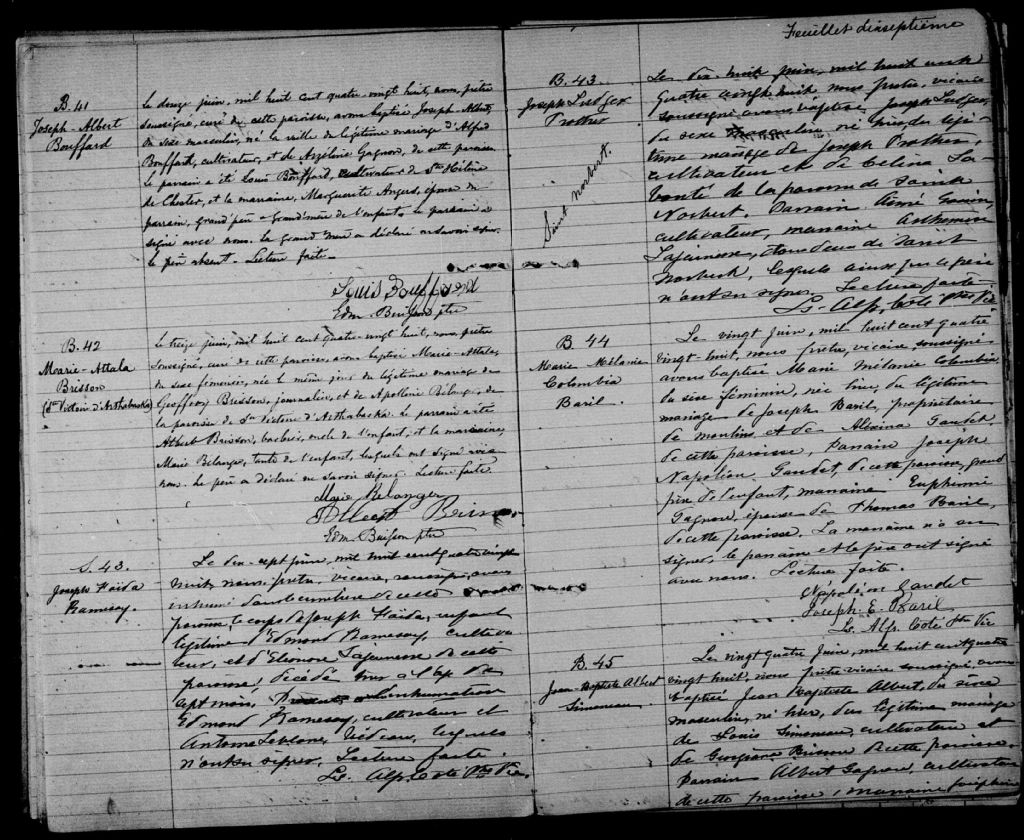 Feuillet dixseptième
B. 41
Joseph-Albert
Bouffard
Le douze juin, mil huit cent quatre-vingt huit, nous, prêtre
soussigné, curé de cette paroisse, avons baptisé Joseph-Albert,
du sexe masculin, né la veille du légitime mariage d'Alfred
Bouffard, cultivateur, et de Gagnon, de cette paroisse.
Le parrain a été Louis Bouffard, cultivateur de Ste Hélène
de Chester, et la marraine, Marguerite Angers, épouse du
parrain, grand père & grand'mère de l'enfant. Le parrain a
signé avec nous. La grand mère a déclaré ne savoir signer.
Le père absent. Lecture faite.
Louis Bouffard
Edm. Buisson ptre
B. 42
Marie-Attala
Brisson
(St Victoire d'Arthabaska)
Le treize juin, mil huit cent quatre-vingt huit, nous, prêtre
soussigné, curé de cette paroisse, avons baptisé Marie-Attala,
du sexe féminin, née le même jour du légitime mariage de
Geoffroy Brisson, journalier, et de Apolline Bélanger, de
la paroisse de St Victoire d'Arthabaska. Le parrain a été
Albert Brisson, oncle de l'enfant, et la marraine,
Marie Bélanger, tante de l'enfant, lesquels ont signé avec
nous. Le père a déclaré ne savoir signer. Lecture faite
Marie Belanger
Albert Brisson
Edm. Buisson ptre
S. 43.
Joseph Haida
Ramesay.
Le dix-sept juin, mil huit cent quatre vingt
huit, nous, prêtre, vicaire, soussigné, avons
inhumé dans le cimetière de cette
paroisse, le corps de Joseph Haida, enfant
légitime d'Edmond Ramesay, cultiva
teur, et d'Eléonore Lajeunesse de cette
paroisse, décédé hier à l'âge de
sept mois. à l'inhumation
Edmond Ramesay, cultivateur et
Antoine Leblanc, bédeau, lesquels
n'ont su signer. Lecture faite.
Ls. Alp. Coté Ptre Vic.
B. 43.
Joseph Ludger
Prother
Saint norbert.
Le dix-huit juin, mil huit cent
quatre vingt huit nous prêtre, vicaire
soussigné avons baptisé Joseph Ludger,
du sexe masculin né hier du légi-
time mariage de Joseph Prother,
cultivateur et de Célina La-
bonté de la paroisse de Sainte
Norbert. Parrain Aimé
cultivateur, marraine Arthémise
Lajeunesse, tous deux de Saint
Norbert, lesquels ainsi que le père
n'ont su signer. Lecture faite.
Ls. Alp. Coté Ptre Vic
B. 44
Marie Mélanie
Colombia
Baril.
Le vingt juin, mil huit cent quatre
vingt-huit, nous prêtre, vicaire soussigné
avons baptisé Marie Mélanie Colombia,
du sexe féminin, née hier, du légitime
mariage de Joseph Baril, propriétaire
de moulins et de Alvina Gaudet,
de cette paroisse, Parrain Joseph
Napoléon Gaudet, de cette paroisse, grand
père de l'enfant, marraine Euphémie
Gagnon, épouse de Thomas Baril,
de cette paroisse. La marraine n'a su
signer, le parrain et le père ont signé
avec nous. Lecture faite.
Népoléon Gaudet
Joseph E. Baril
Ls. Alp. Coté Ptre Vic
B. 45
Jean-Baptiste Albert
Simoneau
Le vingt quatre Juin, mil huit cent quatre
vingt huit, nous prêtre vicaire soussigné avons
baptisé Jean Baptiste Albert, du sexe
masculin, né hier, du légitime mariage
de Louis Simoneau, cultivateur et
de Georgiana Brisson de cette paroisse.
Parrain Albert Gagnon, cultivateur
de cette paroisse, marraine Joséphine